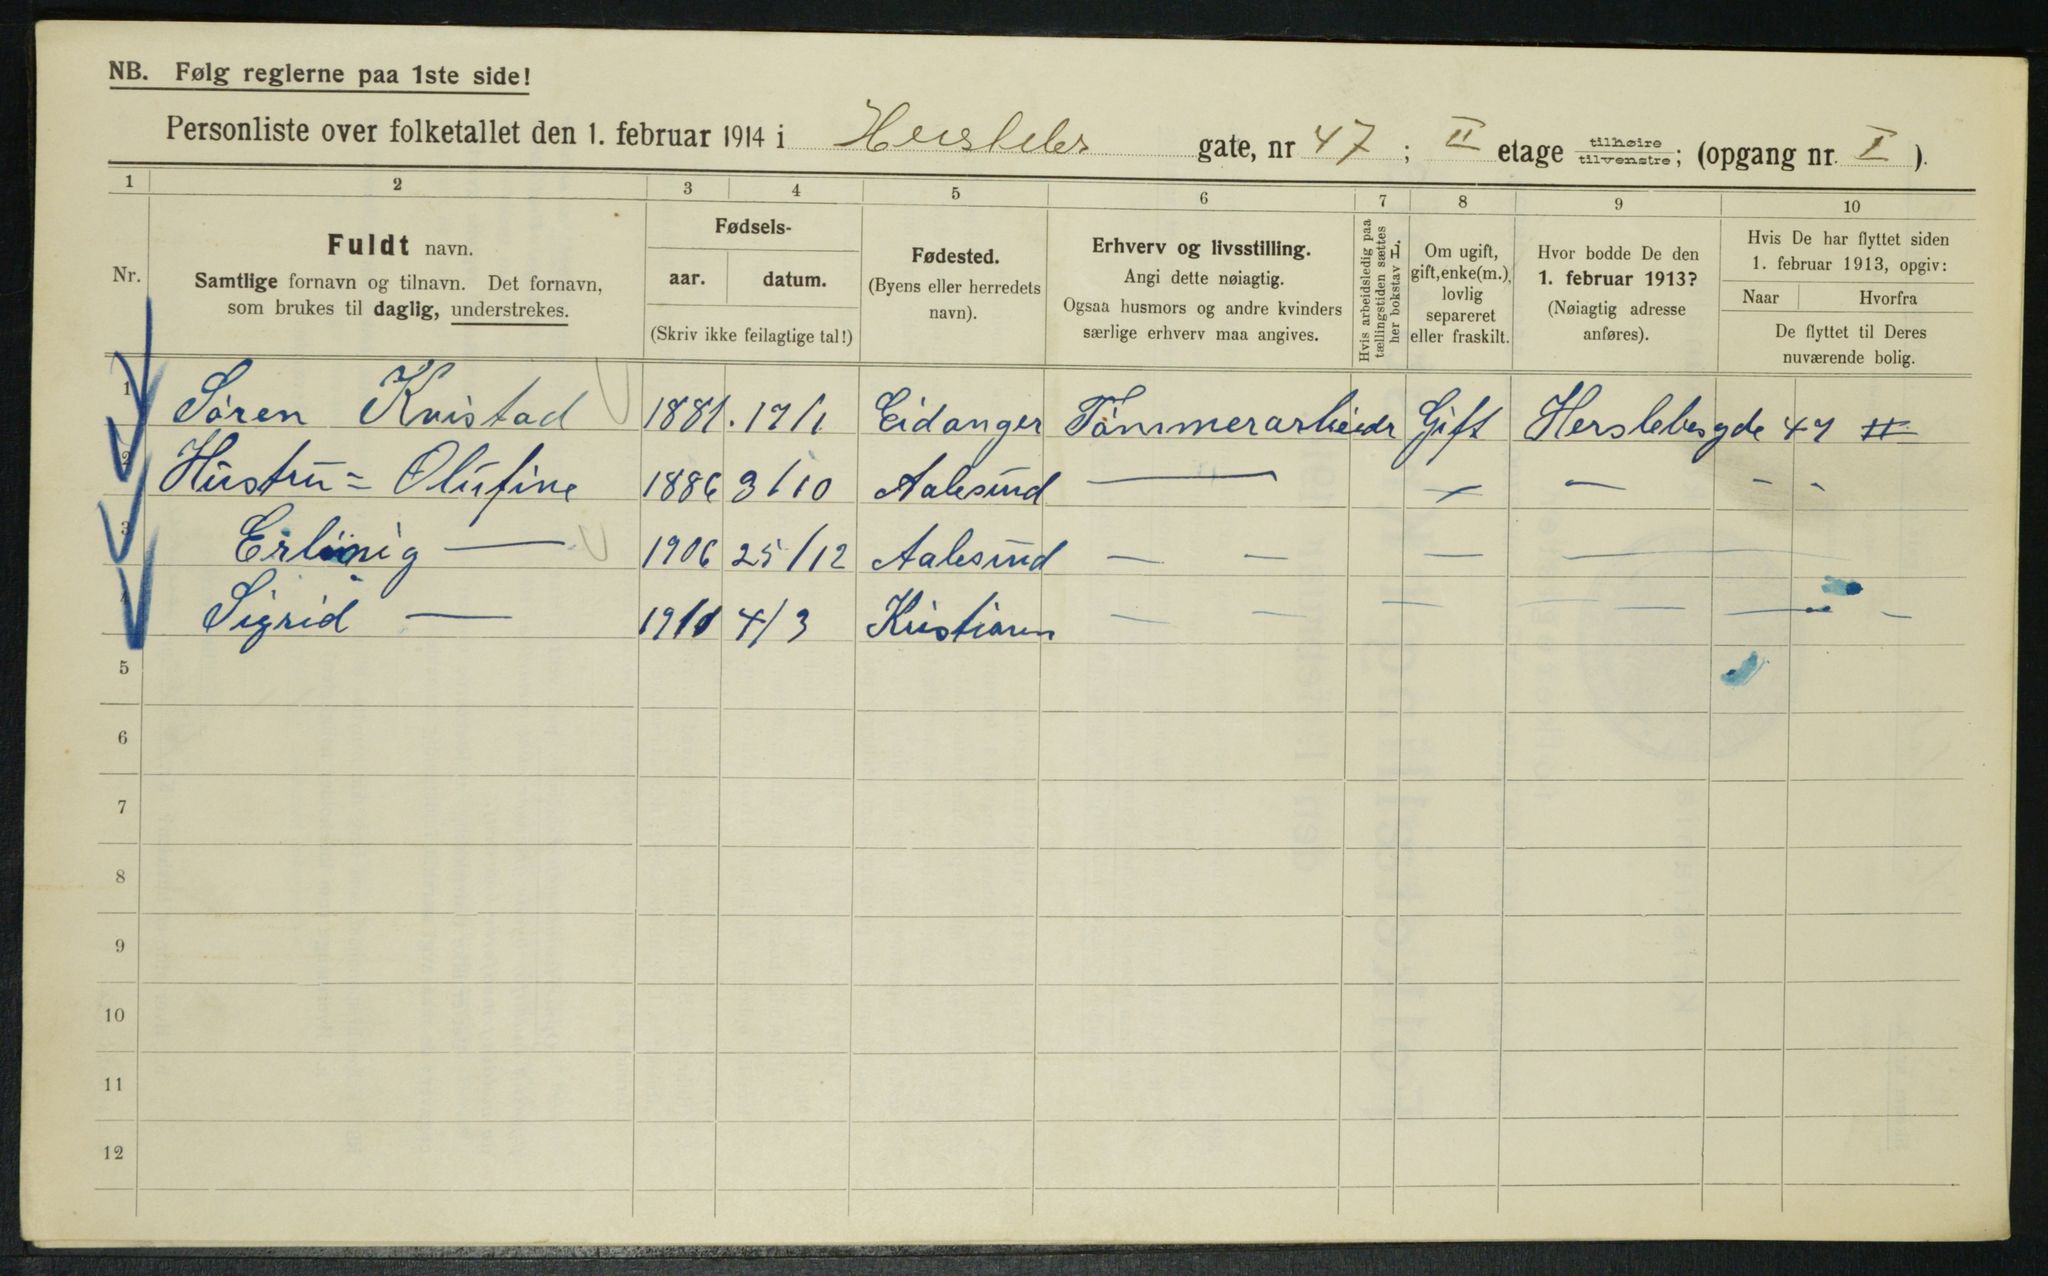 NB. Følg reglerne paa 1ste side!
Personliste over folketallet den 1. februar 1914 i Herslebs gate, nr 47; II etage tilhøire tilvenstre; (opgang nr. I).
1 2 3 4 5 6 7 8 9 10
Nr.
Fuldt navn.
Samtlige fornavn og tilnavn. Det fornavn,
som brukes til daglig, understrekes.
Fødsels-
aar. datum.
(Skriv ikke feilagtige tal!)
Fødested.
(Byens eller herredets
navn).
Erhverv og livsstilling.
Angi dette nøiagtig.
Ogsaa husmors og andre kvinders
særlige erhverv maa angives.
Hvis arbeidsledig paa
tællingstiden sættes
her bokstav L.
Om ugift,
gift, enke(m.),
lovlig
separeret
eller fraskilt.
Hvor bodde De den
1. februar 1913?
(Nøiagtig adresse
anføres).
Hvis De har flyttet siden
1. februar 1913, opgiv:
Naar Hvorfra
De flyttet til Deres
nuværende bolig.
1 Sören Kvistad 1881. 17/1 Eidanger Tömmerarbeidr Gift Herslebsgde 47 II
2 Hustru = Olufine 1886 3/10 Aalesund — — — - -
3 Erling — 1906 25/12 Aalesund — — — —
4 Sigrid — 1911 4/3 Kristiania — — — — — — —
5
6
7
8
9
10
11
12